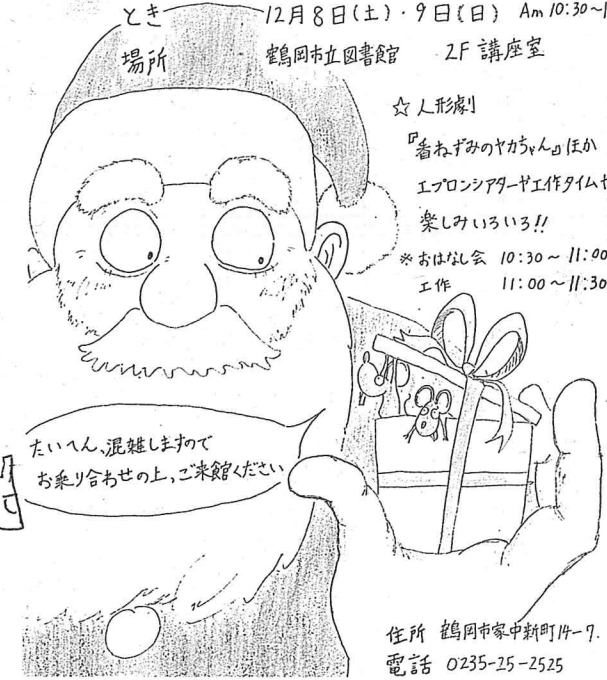 とき 12月8日(土)・9日(日) Am 10:30~1
場所 鶴岡市立図書館 2F 講座室
☆ 人形劇
『番ねずみのヤカちゃん』ほか
エプロンシアターや工作タイムも
楽しみいろいろ!!
※ おはなし会 10:30~11:00
工作 11:00~11:30
たいへん、混雑しますので
お乗り合わせの上、ご来館ください
住所 鶴岡市家中新町14-7.
電話 0235-25-2525